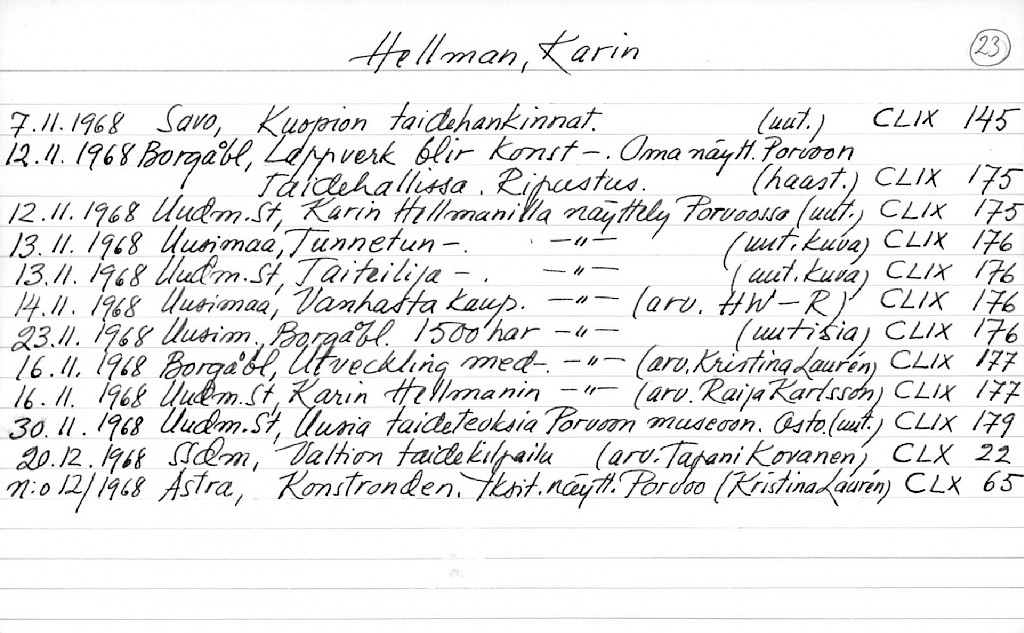 Hellman, Karin 23
7.11.1968 Savo, Kuopion taidehankinnat. (uut.) CLIX 145
12.11.1968 Borgåbl, Lappverk blir konst –. Oma näytt. Porvoon
Taidehallissa. Ripustus. (haast.) CLIX 175
12.11.1968 Uudm.St, Karin Hellmanilla näyttely Porvoossa (uut.) CLIX 175
13.11.1968 Uusimaa, Tunnetun –. –"– (uut. kuva) CLIX 176
13.11.1968 Uudm.St, Taiteilija –. –"– (uut. kuva) CLIX 176
14.11.1968 Uusimaa, Vanhasta kaup. –"– (arv. HW–R) CLIX 176
23.11.1968 Uusim., Borgåbl. 1500 har –"– (uutisia) CLIX 176
16.11.1968 Borgåbl, Utveckling med –. –"– (arv. Kristina Laurén) CLIX 177
16.11.1968 Uudm.St, Karin Hellmanin –"– (arv. Raija Karlsson) CLIX 177
30.11.1968 Uudm.St, Uusia taideteoksia Porvoon museoon. Osto. (uut.) CLIX 179
20.12.1968 SSdm, Valtion taidekilpailu (arv. Tapani Kovanen) CLX 22
n:o 12/1968 Astra, Konstronden. Yksit. näytt. Porvoo (Kristina Laurén) CLX 65